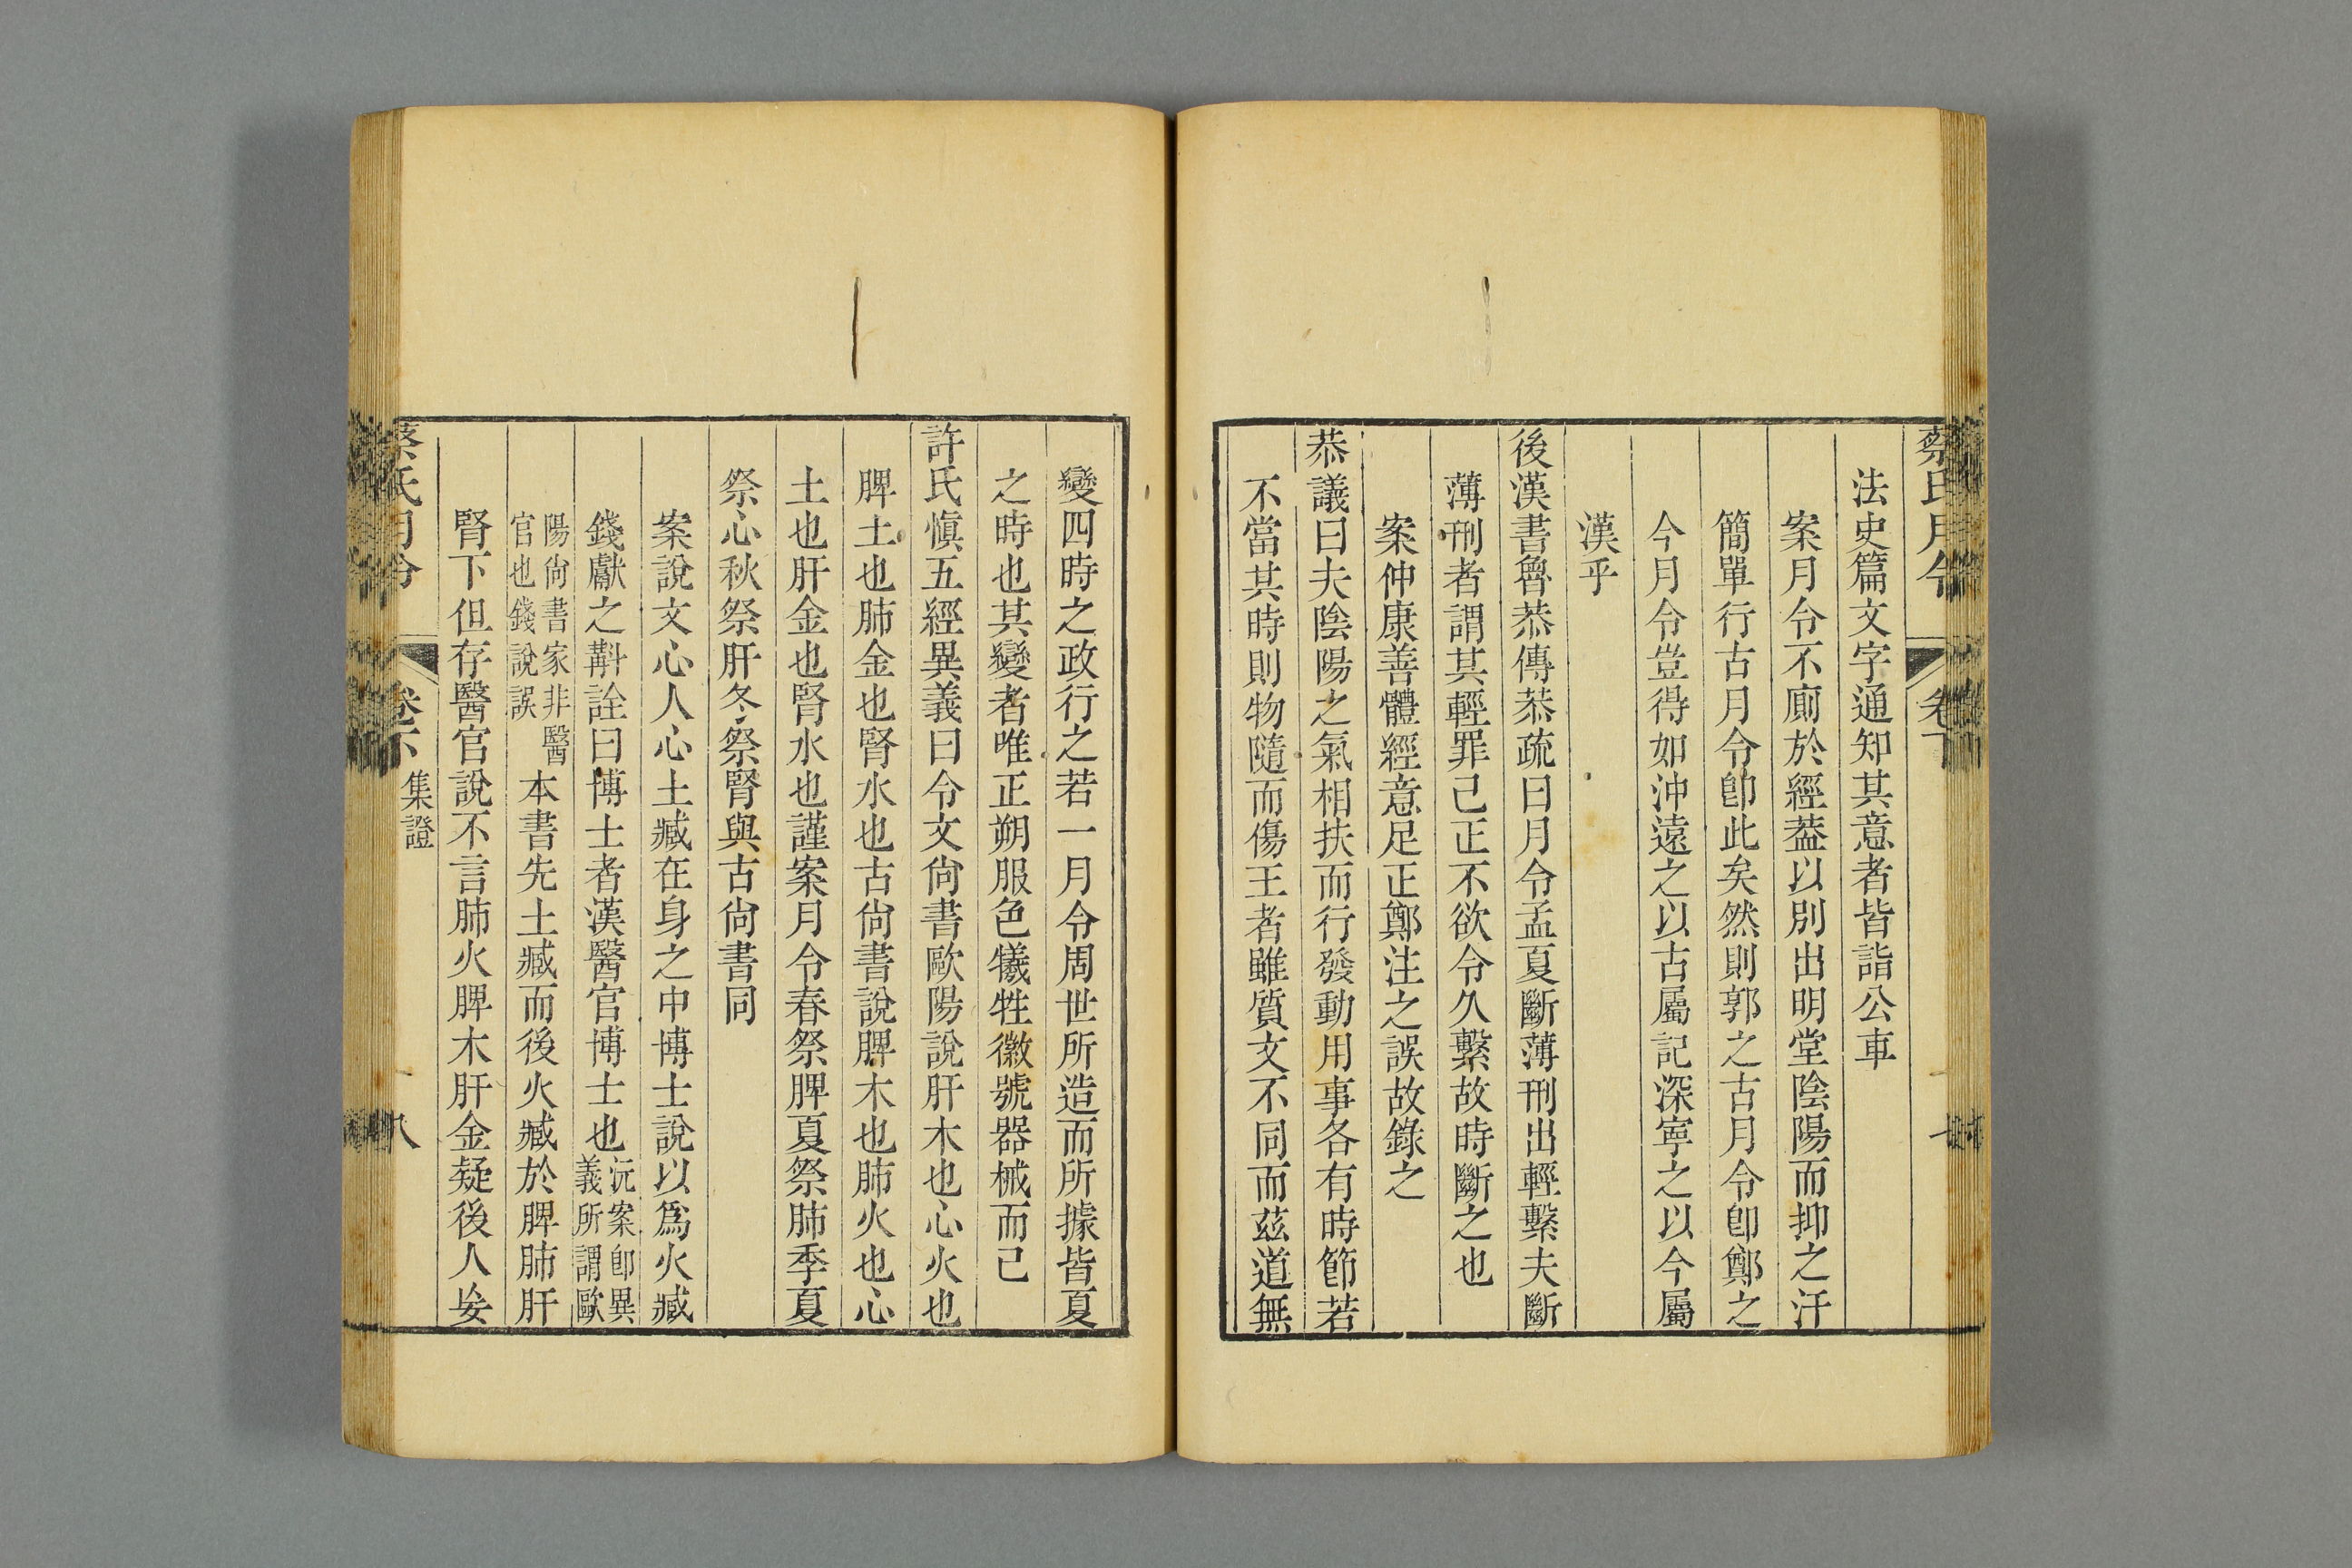 蔡氏月令
卷下
法史篇文字通知其意者皆詣公車
案月令不廁於經葢以別出明堂陰陽而抑之汗
簡單行古月令卽此矣然則郭之古月令卽鄭之
今月令豈得如沖遠之以古屬記深寧之以今屬
漢乎
後漢書魯恭傳恭疏曰月令孟夏斷薄刑出輕繫夫斷
薄刑者謂其輕罪己正不欲令久繫故時斷之也
案仲康善體經意足正鄭注之誤故錄之
恭議曰夫陰陽之氣相扶而行發動用事各有時節若
不當其時則物隨而傷王者雖質文不同而茲道無
變四時之政行之若一月令周世所造而所據皆夏
之時也其變者唯正朔服色犧牲徽號器械而己
許氏愼五經異義曰今文尙書歐陽說肝木也心火也
脾土也肺金也腎水也古尙書說脾木也肺火也心
土也肝金也腎水也謹案月令春祭脾夏祭肺季夏
祭心秋祭肝冬祭腎與古尙書同
案說文心人心土臧在身之中博士說以爲火臧
錢獻之斠詮曰博士者漢醫官博士也沅案卽異
義所謂歐
陽尙書家非醫
官也錢說誤本書先土臧而後火臧於脾肺肝
腎下但存醫官說不言肺火脾木肝金疑後人妄
蔡氏月令
卷下
集證
八